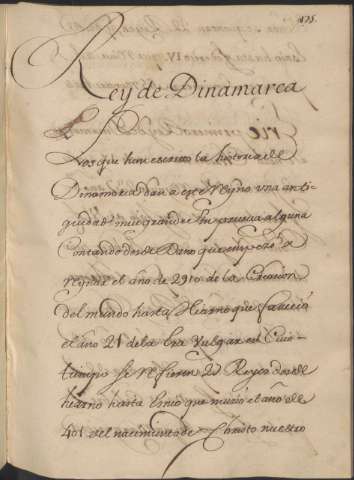 175.
Rey de Dinamarca
Los que han escrito la historia de
Dinamarca dan a este Reyno una anti-
guedad mui grande sin prueva alguna
Contando desde Dano que empezó a
reynar el año de 2910 de la Creacion
del mundo hasta Hiarno que fallecio
el año 21 de la Era Vulgar en cuio
tiempo se refieren 22 Reyes desde
hiarno hasta que murió el año de
401 del nacimiento de Christo nuestro